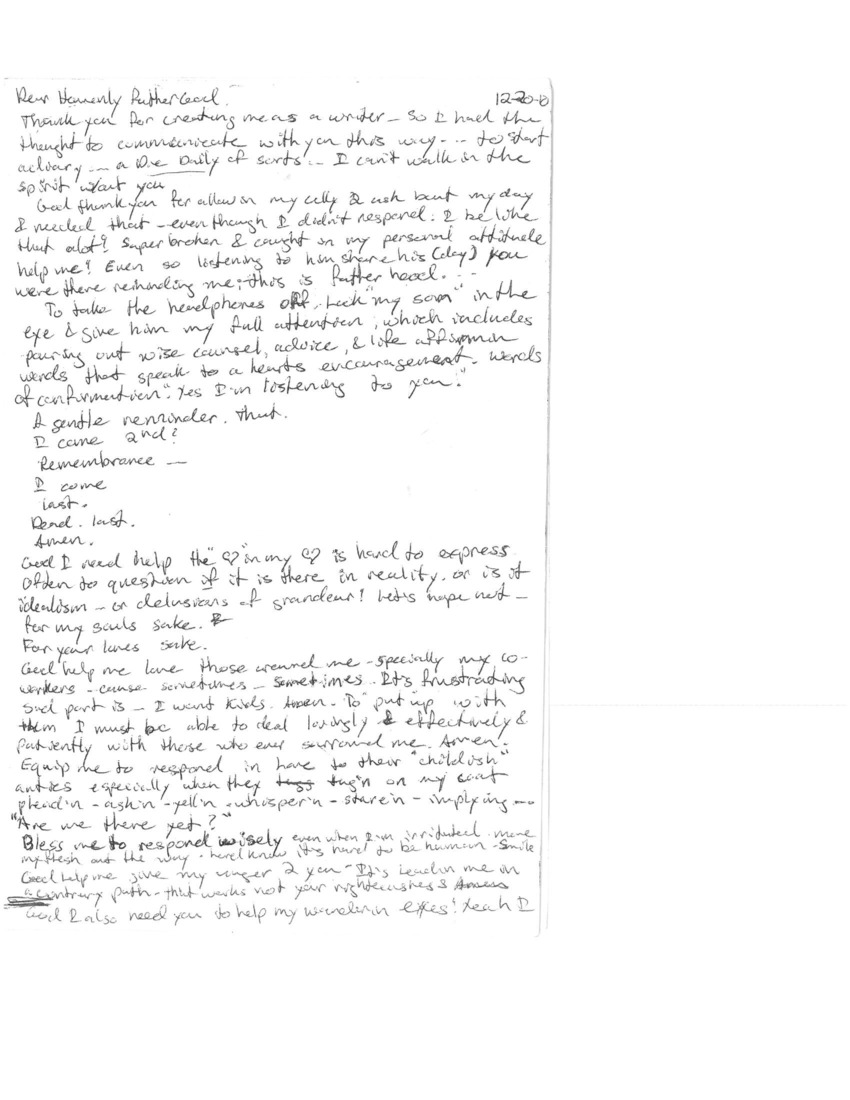 Dear Heavenly Father God. 12-20-
Thank you for creating me as a writer - so I had the
thought to communicate with you this way - .. to start
a diary -- a Daily of sorts - I can't walk in the
spirit w/out you
God thank you for allowin my celly 2 ask bout my day
I needed that - even though I didn't respond. I be like
that alot! Super broken & caught in my personal attitude
help me! Even so listening to him share his (day) you
were there reminding me; this is father hood. . .
To take the headphones off. Look "my son" in the
eye & give him my full attention; which includes
pouring out wise counsel, advice, & life affirmin
words that speak to a hearts encouragement. words
of confirmation. "Yes I'm listening to you."
A gentle reminder. that.
I came 2nd?
Remembrance —
I come
last.
Dead. last.
Amen.
God I need help the "♡" in my ♡ is hard to express
Often to question if it is there in reality. or is it
idealism - or delusions of grandeur! Let's hope not -
for my souls sake.
For your loves sake.
God help me love those around me - specially my co-
workers - cause sometimes - sometimes. It's frustrating
Sad part is - I want kids. Amen. To "put up with
them I must be able to deal lovingly & effectively &
patiently with those who ever surround me. Amen.
Equip me to respond in love to their "childish"
antics especially when they tugg tug'n on my coat
plead'n - ask'n - yell'n - whisper'n - stare'n - implying --
"Are we there yet?"
Bless me to respond wisely even when I'm irritated. move
my flesh out the way - Lord know it's hard to be human - Smile
God help me give my anger 2 you - It's leadin me in
a contrary path - that works not your righteousness
God I also need you to help my wanderin eyes! Yeah I